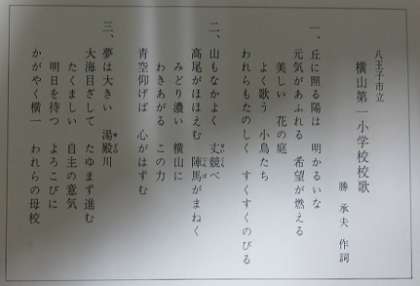 八王子市立
横山第一小学校校歌
勝 承夫 作詞
一、丘に照る陽は 明かるいな
元気があふれる 希望が燃える
美しい 花の庭
よく歌う 小鳥たち
われらもたのしく すくすくのびる
二、山もなかよく 丈競べ
高尾がほほえむ 陣馬がまねく
みどり濃い 横山に
わきあがる この力
青空仰げば 心がはずむ
三、夢は大きい 湯殿川
大海目ざして たゆまず進む
たくましい 自主の意気
明日を待つ よろこびに
かがやく横一 われらの母校